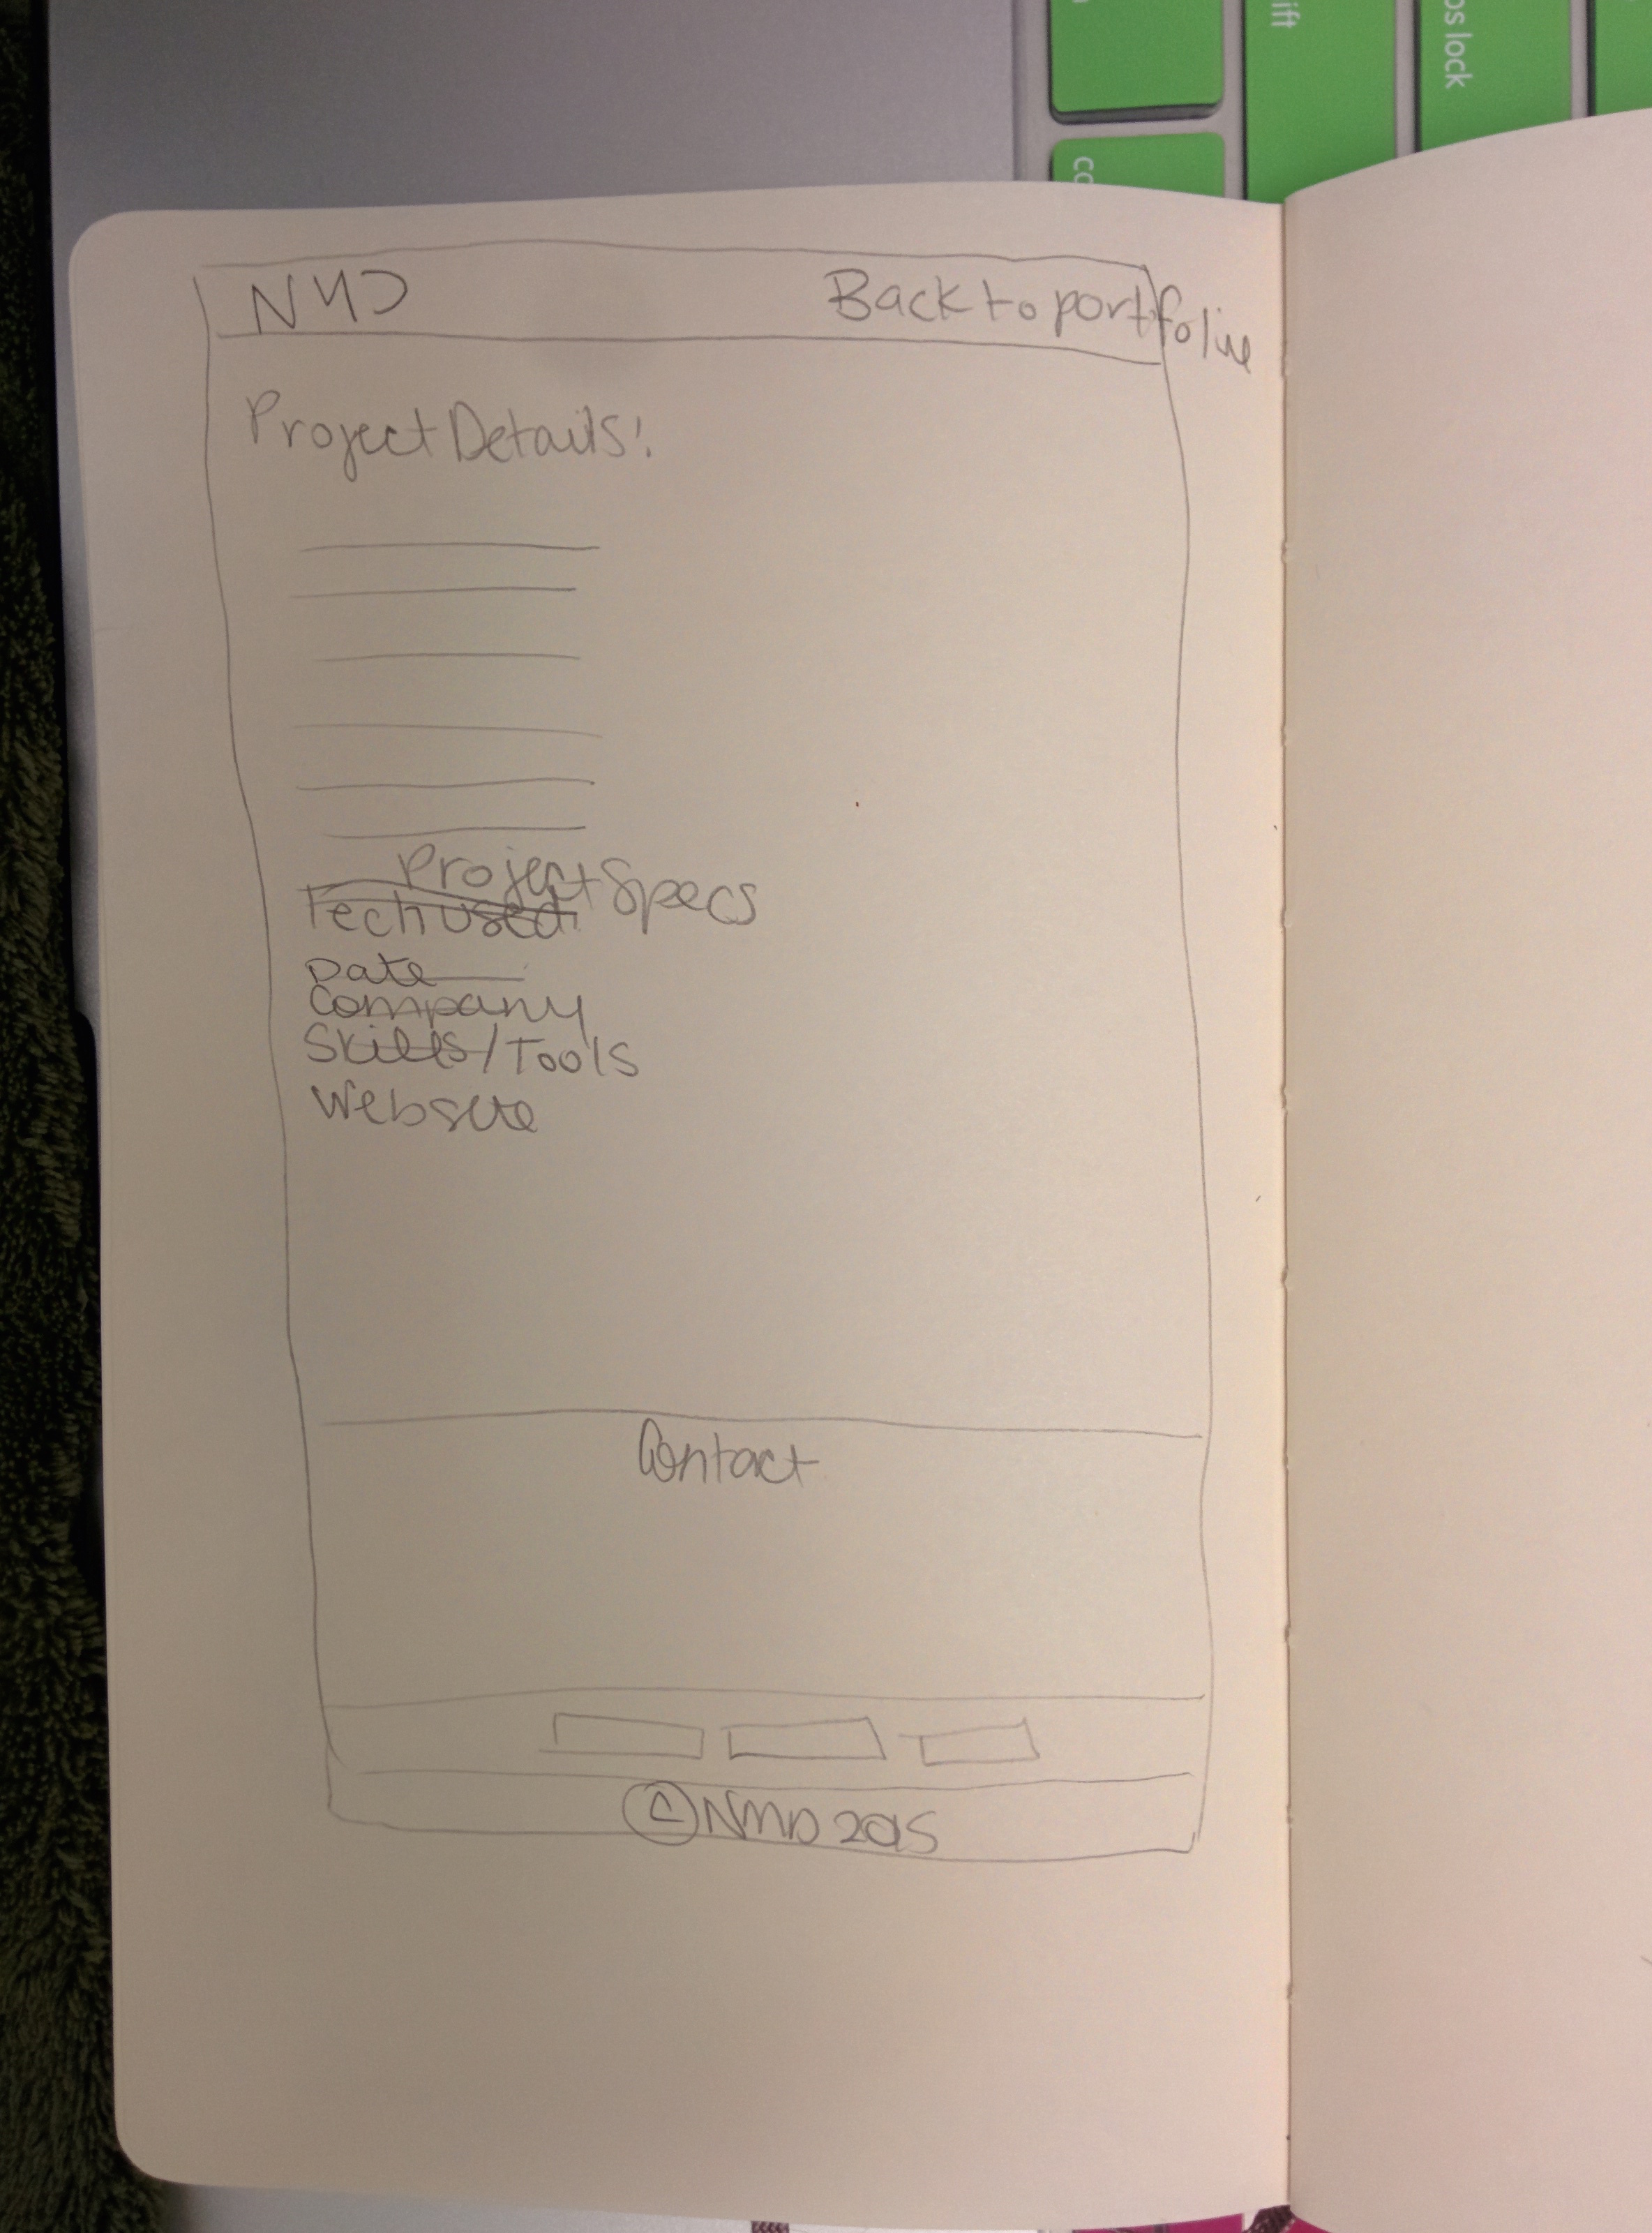 ift
ps lock
co
NMD
Back to portfolio
Project Details:
Project Specs
Tech used:
Date
Company
Skills/Tools
Website
Contact
© NMD 2015